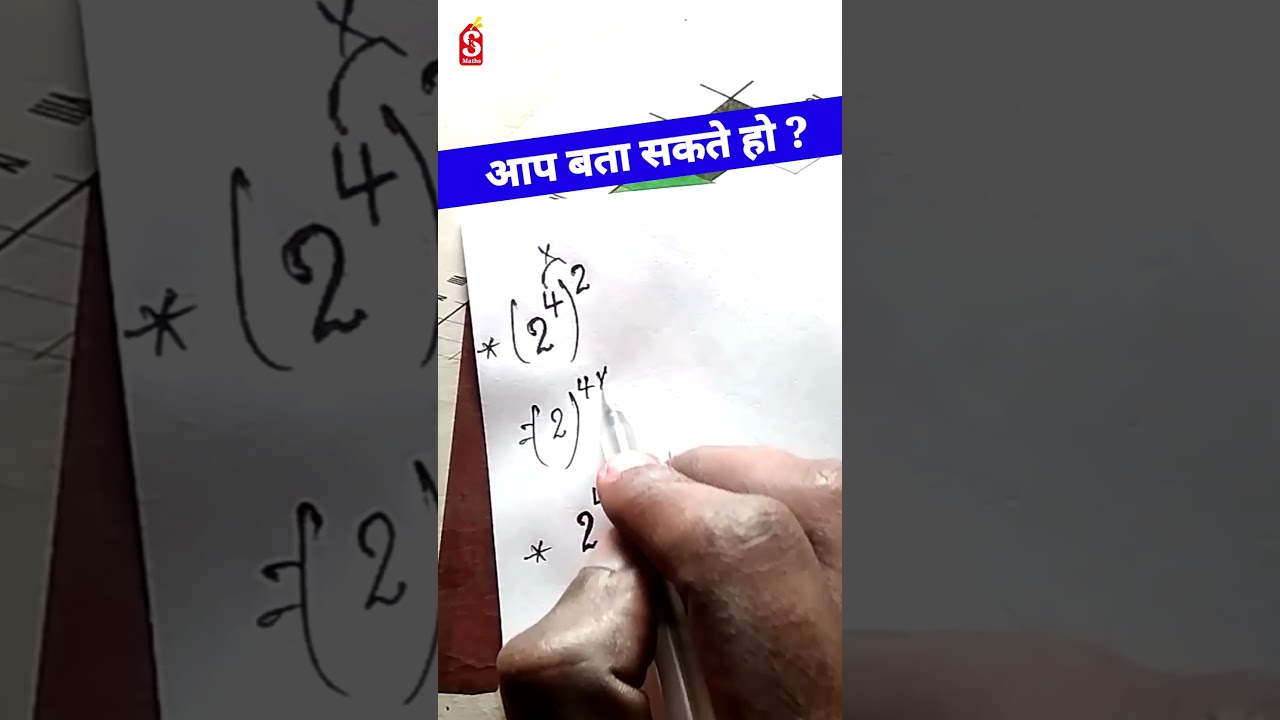 S
Maths
आप बता सकते हो ?
* (2⁴)²
=(2)⁴ˣ
* 2⁴